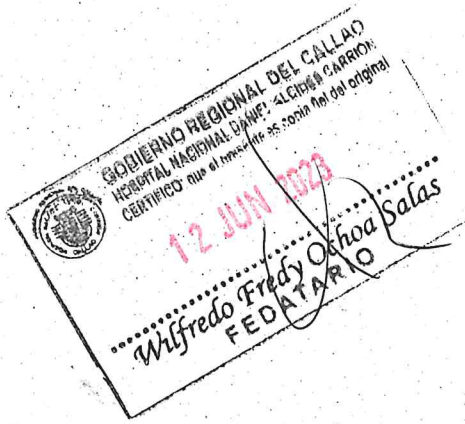 GOBIERNO REGIONAL DEL CALLAO
HOSPITAL NACIONAL DANIEL ALCIDES CARRION
CERTIFICO que el presente es copia fiel del original
12 JUN 2023
Wilfredo Fredy Ochoa Salas
FEDATARIO